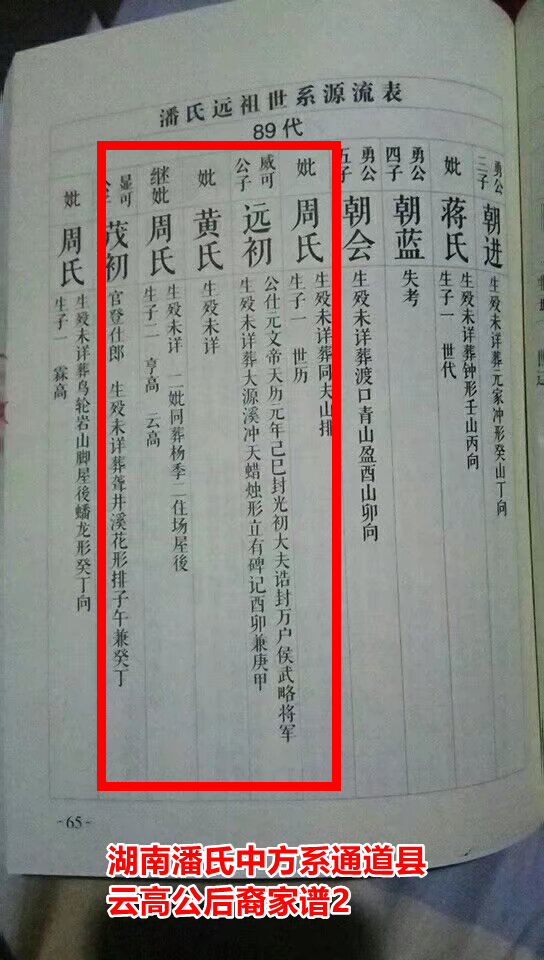 潘氏远祖世系源流表
89代
勇公
三子
朝进
生殁未详葬元家冲形癸山丁向
妣
蒋氏
生殁未详葬钟形壬山丙向
生子一 世代
勇公
四子
朝蓝
失考
勇公
五子
朝会
生殁未详葬渡口青山盈酉山卯向
妣
周氏
生殁未详葬同夫山排
生子一 世历
威可
公子
远初
公仕元文帝天历元年己巳封光初大夫诰封万户侯武略将军
生殁未详葬大源溪冲天蜡烛形立有碑记酉卯兼庚甲
妣
黄氏
生殁未详
继妣
周氏
生殁未详 二妣同葬杨季二住场屋後
生子二 亨高 云高
显可
公子
茂初
官登仕郎 生殁未详葬聋井溪花形排子午兼癸丁
妣
周氏
生殁未详葬鸟轮岩山脚屋後蟠龙形癸丁向
生子一 霖高
-65-
湖南潘氏中方系通道县
云高公后裔家谱2